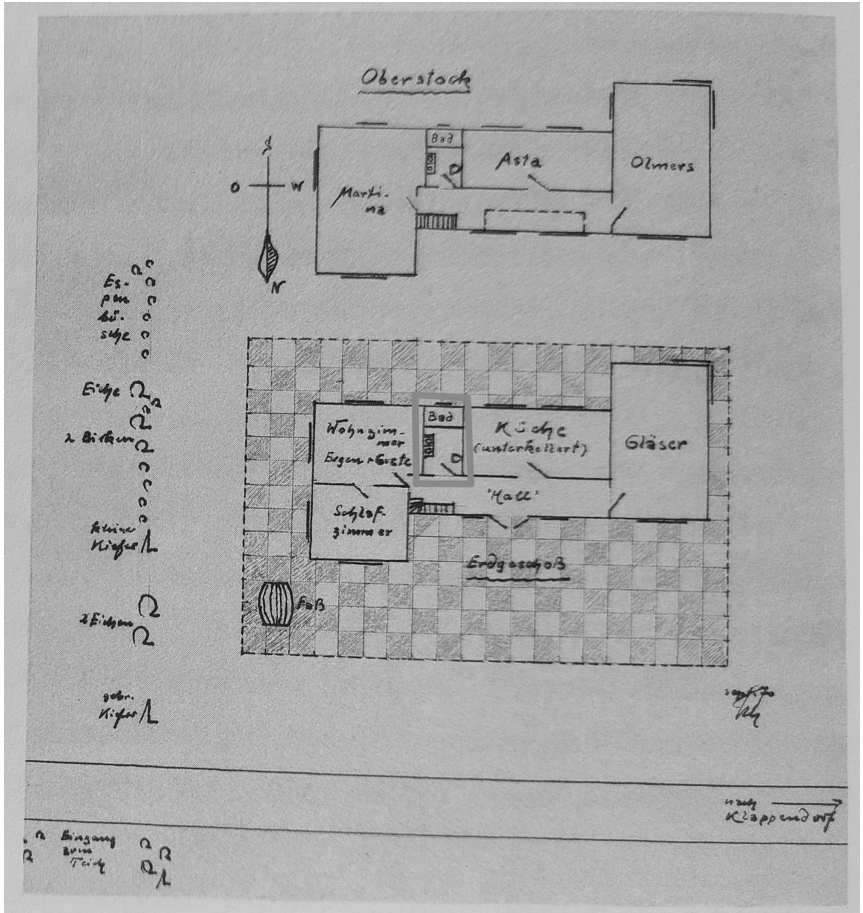 Oberstock
S
O
W
N
Bad
Asta
Olmers
Marti-
na
Es-
pen
bü-
sche
Eiche
2 Birken
kleine
Kiefer
2 Eichen
gebr.
Kiefer
Wohnzim-
mer
Eugen + Grete
Bad
Küche
(unterkellert)
Gläser
"Hall"
Schlaf-
zimmer
Erdgeschoß
Faß
nach
Klappendorf
Eingang
zum
Teich